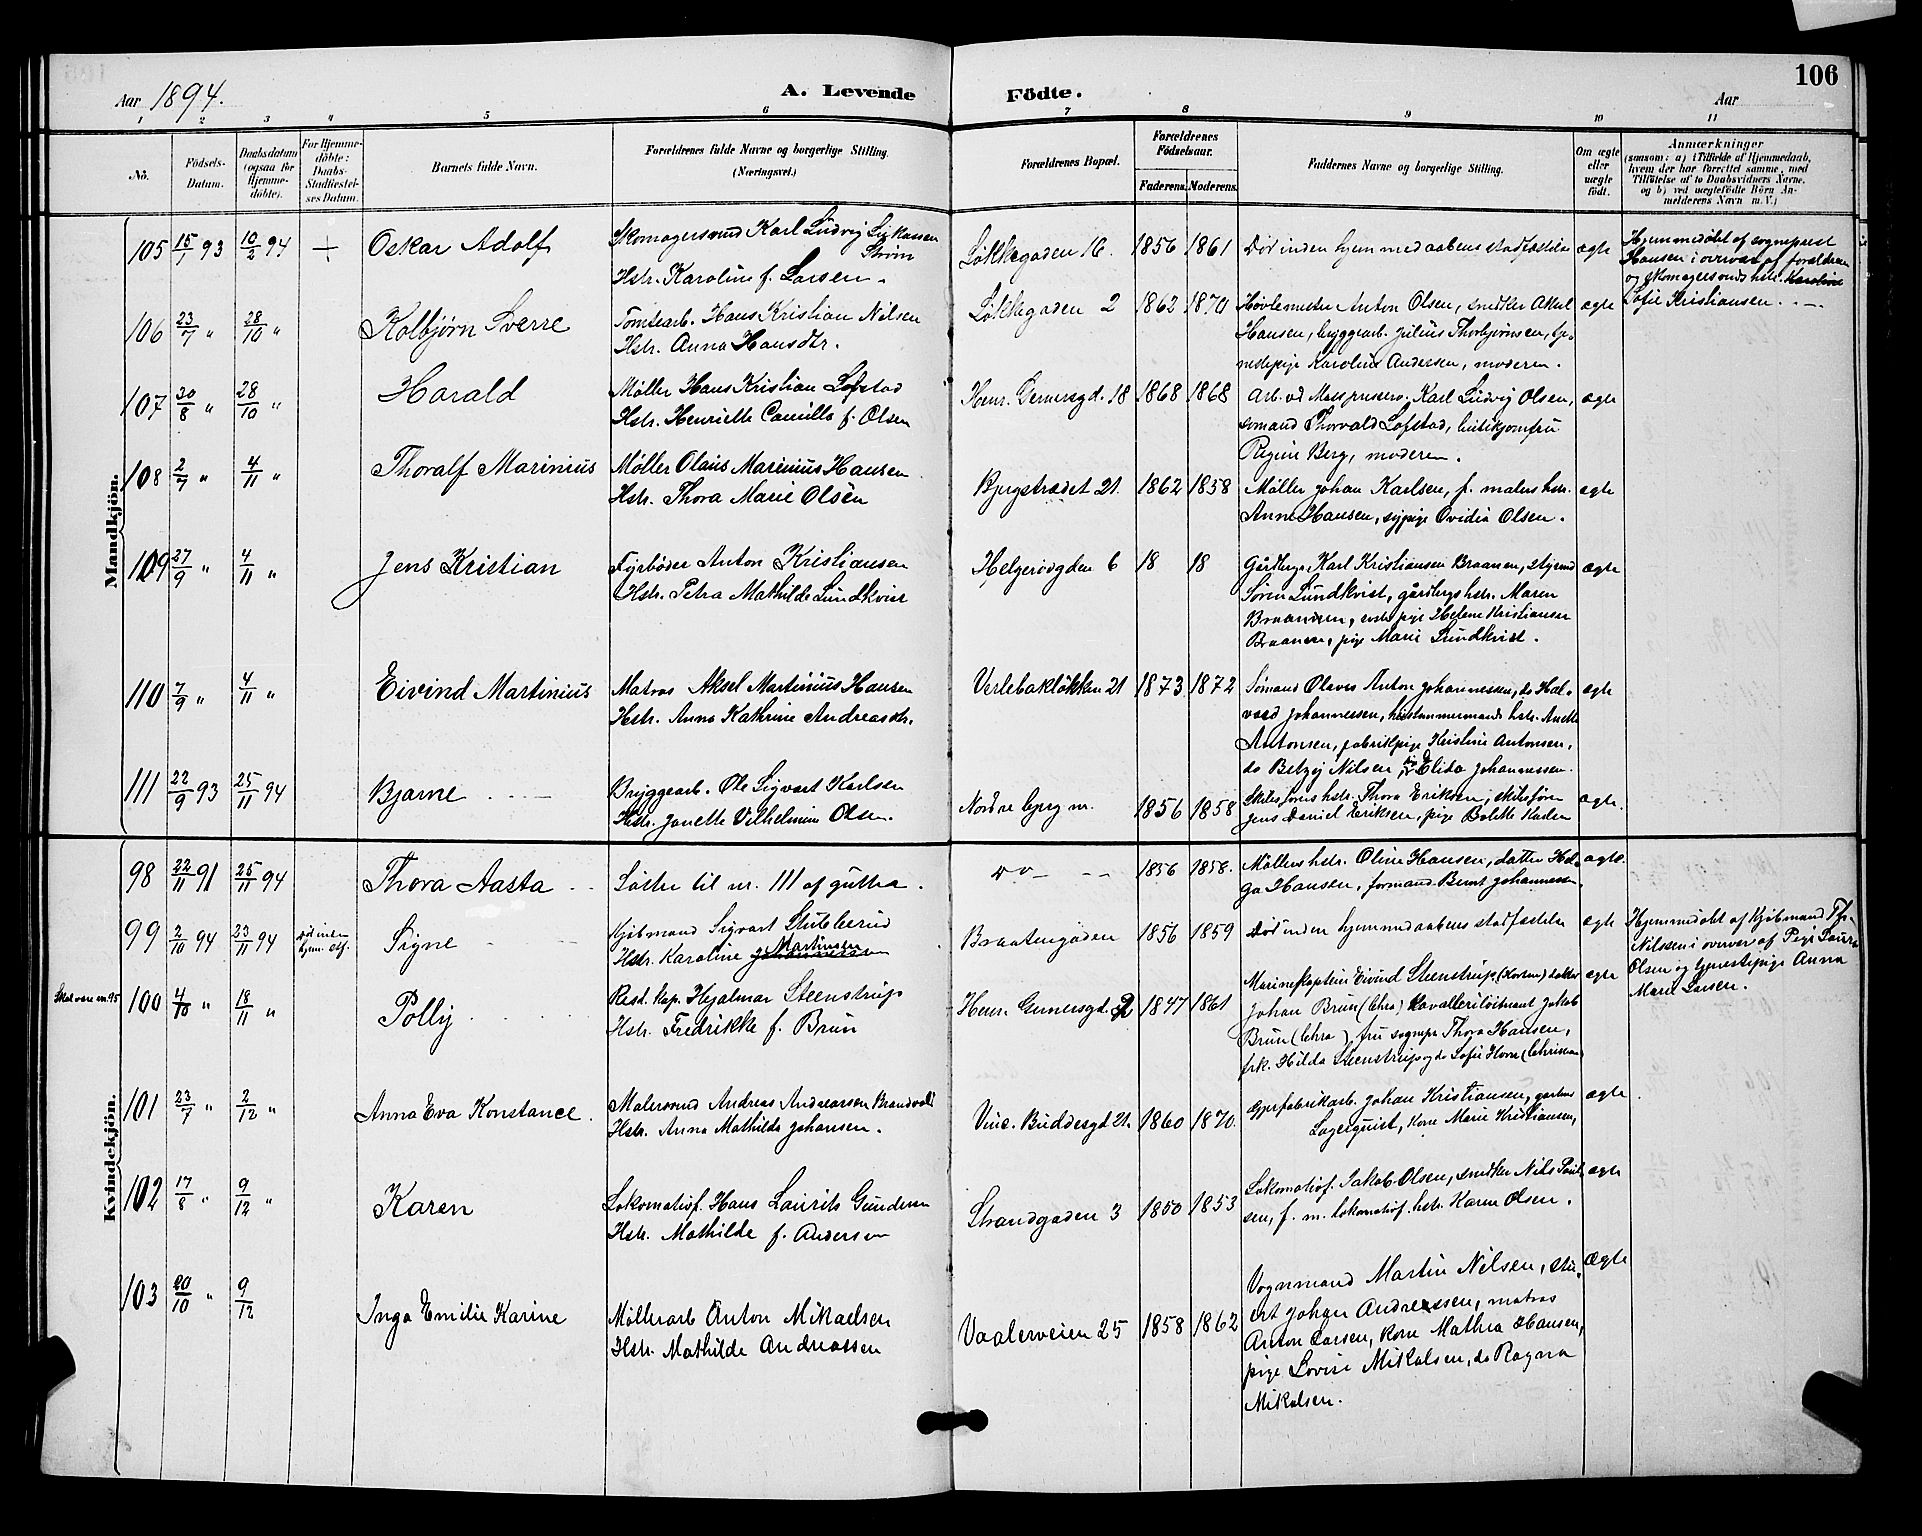 106
Aar 1894.
A. Levende Födte.
Aar
1 2 3 4 5 6 7 8 9 10 11
No.
Födsels-Datum.
Daabsdatum (ogsaa for Hjemme-döbte).
For Hjemme-döbte: Daabs-Stadfæstel-ses Datum.
Barnets fulde Navn.
Forældrenes fulde Navne og borgerlige Stilling. (Næringsvei.)
Forældrenes Bopæl.
Forældrenes Födselsaar.
Faderens. Moderens.
Faddernes Navne og borgerlig Stilling.
Om ægte eller uægte födt.
Anmærkninger
(saasom: a) i Tilfælde af Hjemmedaab,
hvem der har forrettet samme, med
Tilföielse af to Daabsvidners Navne,
og b) ved uægtefödte Börn An-
melderens Navn m. V.)
Mandkjön.
105 15/1 93 10/2 94 + Oskar Adolf
Skomagersvend Karl Ludvig
Strøm
Hstr. Karoline f. Larsen.
Løkkegaden 16. 1856 1861 Død inden hjemmedaabens stadfæstelse ægte
Hjemmedøbt af sogneprest
Hansen i overvær af forældrene
og skomagersvends hstr. Karoline
Sofie Kristiansen.
106 23/7 " 28/10 " Kolbjørn Sverre
Tomtearb. Hans Kristian Nilsen
Hstr. Anna Hansdtr.
Løkkegaden 2 1862 1870 Høvlemester Anton Olsen, snedker Aksel ægte
Hansen, bryggearb. Julius Thorbjørnsen, tje-
nestepige Karoline Andersen, moderen.
107 30/8 " 28/10 " Harald
Møller Hans Kristian Lofstad
Hstr. Henriette Camilla f. Olsen
Henr. Gernersgd. 18 1868 1868 Arb. vd Karl Ludvig Olsen, ægte
sømand Thorvald Lofstad, butikjomfru
Regine Berg, moderen.
108 2/7 " 4/11 " Thoralf Marinius
Møller Olaus Marinius Hansen
Hstr. Thora Marie Olsen
Bjergstrædet 21. 1862 1858 Møller Johan Karlsen, f. malers hstr. ægte
Anne Hansen, sypige Ovidia Olsen.
109 27/9 " 4/11 " Jens Kristian
Fyrbøder Anton Kristiansen
Hstr. Petra Mathilde Lundkvist
Helgerødgden 6 18 18 Gårdbrgr. Karl Kristiansen Braanen, styrmd ægte
Søren Lundkvist, gårdbrgs hstr. Maren
Braanen, pige Helene Kristiansen
Braanen, pige Marie Lundkvist.
110 7/9 " 4/11 " Eivind Martinius
Matros Aksel Martinius Hansen
Hstr. Anna Kathrine Andreasdtr.
Verlebakløkken 21 1873 1872 Sømand Olaves Anton Johannessen, do Hal- ægte
vard Johannessen, hustømmermands hstr. Anette
Antonsen, fabrikpige Kristine Antonsen,
do Betzy Nilsen Elida Johannessen.
111 22/9 93 25/11 94 Bjarne
Bryggearb. Ole Sigvart Karlsen
Hstr. Janette Vilhelmine Olsen.
Nordre bjerg m. 1856 1858 hstr. Thora Eriksen, ægte.
Jens Daniel Eriksen, pige Bolette Karlsen
Kvindekjön.
98 22/11 91 25/11 94 Thora Aasta
Søster til nr. 111 af gutter.
do 1856 1858. Møllers hstr. Oline Hansen, datter Hel- ægte.
ga Hansen, formand Bernt Johannessen.
99 2/10 94 23/11 94 død inden hjem. stf. Signe
Kjøbmand Sigvart Stubberud
Hstr. Karoline Martinsen
Braatengaden 1856 1859 Død inden hjemmedaabens stadfæstelse ægte
Hjemmedøbt af Kjøbmand Th.
Nilssen i overvær af Pige Laura
Olsen og tjenestepige Anna
Marie Larsen.
100 4/10 " 18/11 " Polly
Resd. kap. Hjalmar Steenstrup
Hstr. Fredrikke f. Brun
Henr. Gernersgd. 1847 1861 Marinekaptein Eivind Steenstrup (Horten) ægte
Johan Brun (Chra) Kavalleriløitnant Jakob
Brun (Chra), fru sognepr. Thora Hansen,
frk. Hilda Steenstrup og do Sofie Horn (Christiania)
101 23/7 " 2/12 " Anna Eva Konstance.
Malersvend Andreas Andreassen Brandvold
Hstr. Anna Mathilde Johansen.
Vinc. Buddesgd 21. 1860 1870. Johan Kristiansen, gartner ægte
Lagerquist, kone Marie Kristiansen,
102 17/8 " 9/12 " Karen
Lokomotivf. Hans Laurits Gundersen
Hstr. Mathilde f. Andersen
Strandgaden 3 1850 1853 Lokomotivf. Jakob Olsen, snedker Nils Paul- ægte
sen, f. m. lokomotivf. hstr. Karen Olsen.
103 20/10 " 9/12 Inga Emilie Karine
Møllerarb Anton Mikaelsen
Hstr. Mathilde Andreassen
Vaalerveien 25 1858 1862 Vognmand Martin Nilsen, stu- Ægte
ert Johan Andreassen, matros
Anton Larsen, kone Mathea Hansen,
pige Lovise Mikalsen, do Ragna
Mikalsen.